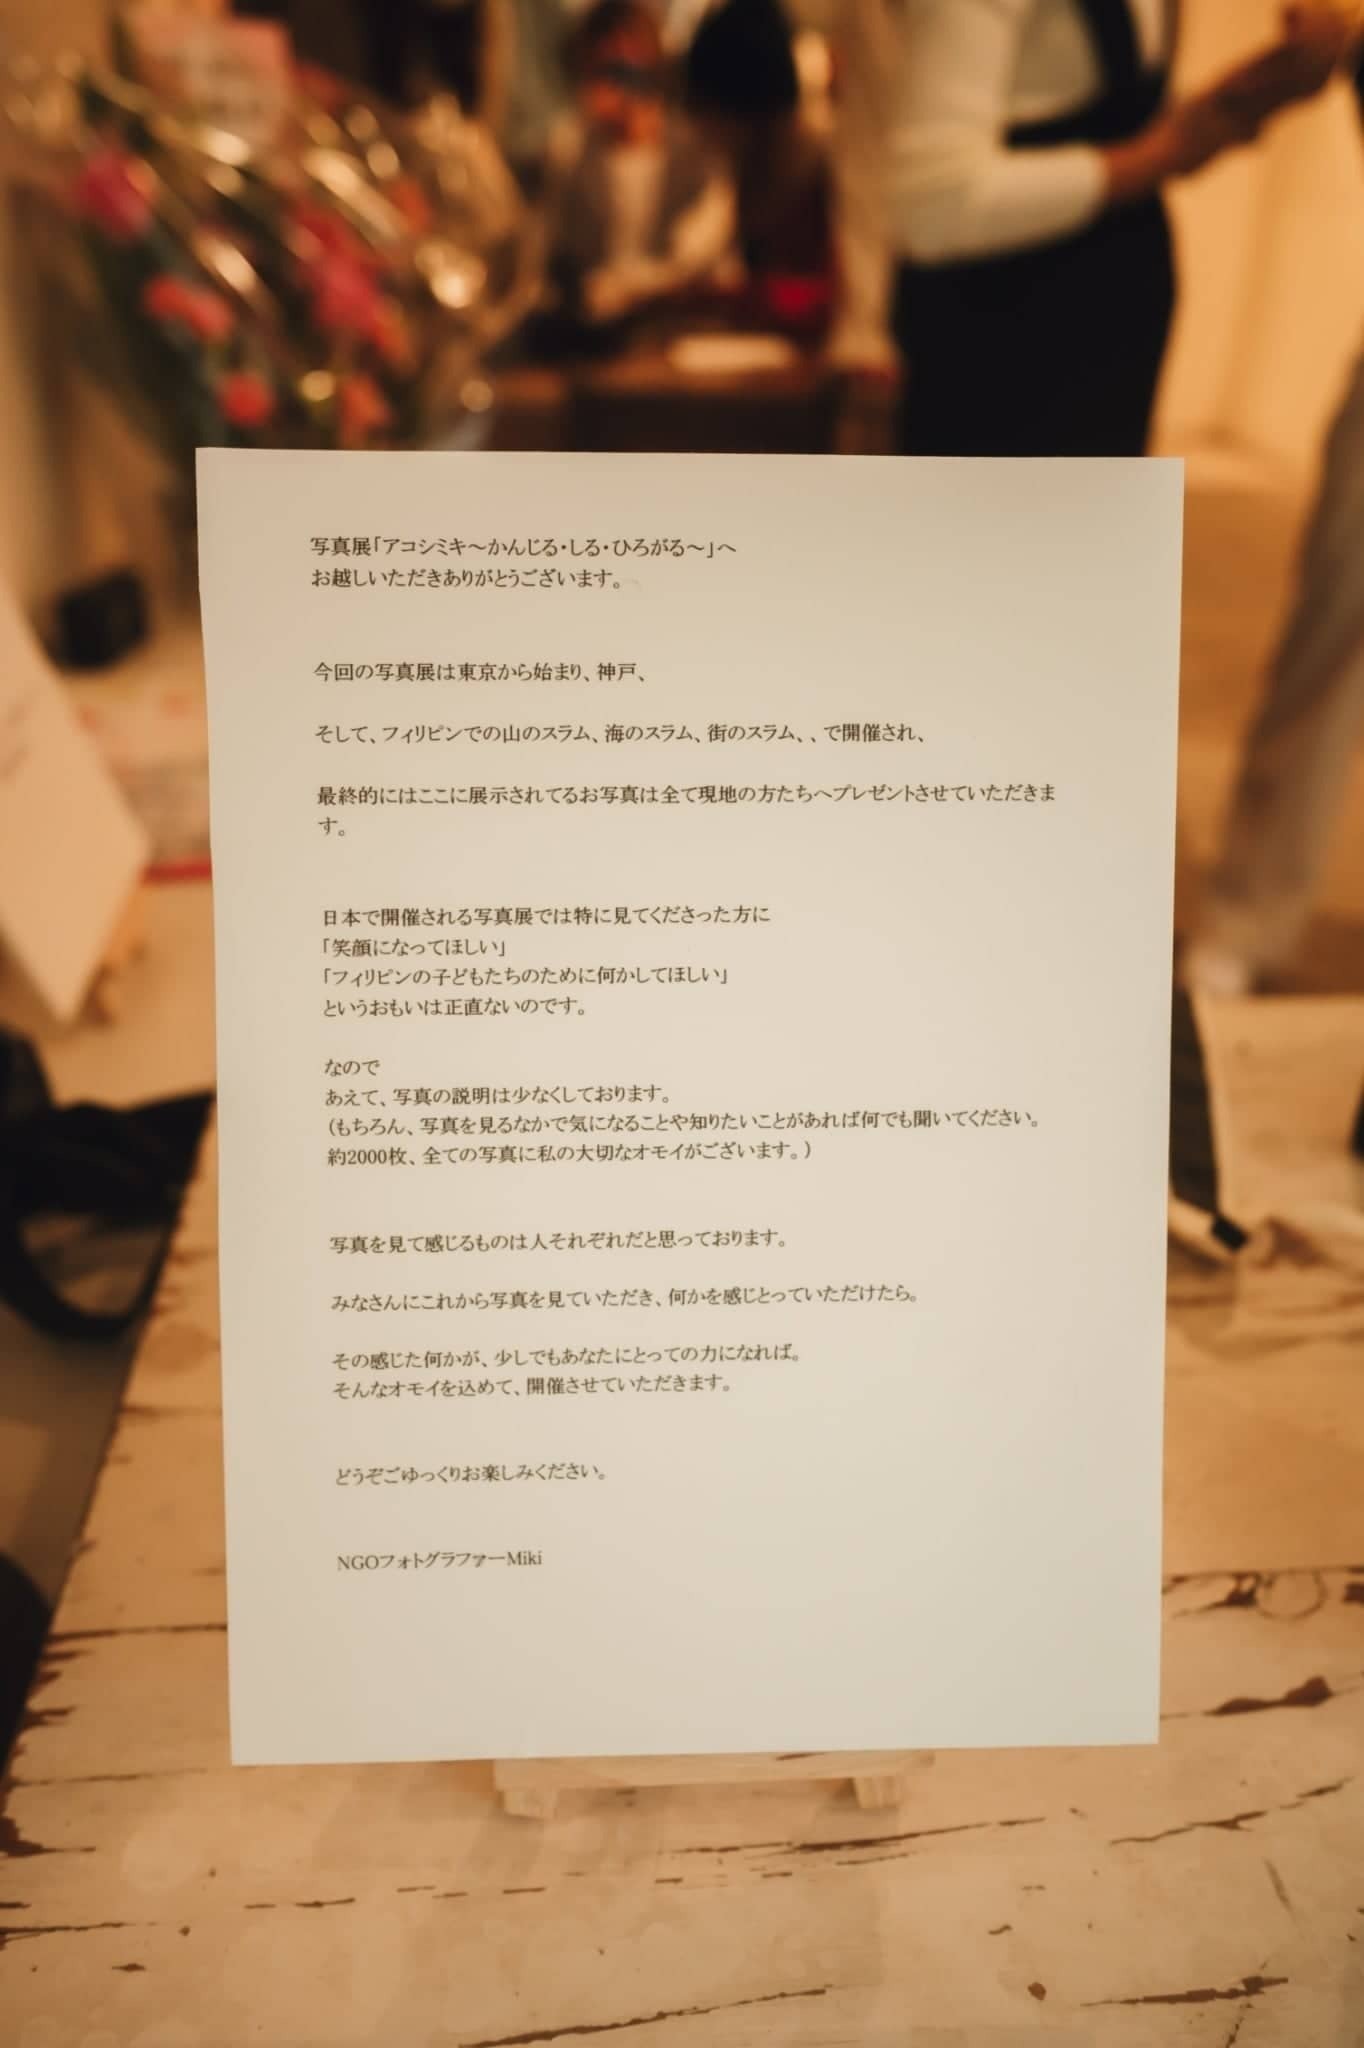 写真展「アコシミキ～かんじる・しる・ひろがる～」へ
お越しいただきありがとうございます。
今回の写真展は東京から始まり、神戸、
そして、フィリピンでの山のスラム、海のスラム、街のスラム、、で開催され、
最終的にはここに展示されてるお写真は全て現地の方たちへプレゼントさせていただきま
す。
日本で開催される写真展では特に見てくださった方に
「笑顔になってほしい」
「フィリピンの子どもたちのために何かしてほしい」
というおもいは正直ないのです。
なので
あえて、写真の説明は少なくしております。
（もちろん、写真を見るなかで気になることや知りたいことがあれば何でも聞いてください。
約2000枚、全ての写真に私の大切なオモイがございます。）
写真を見て感じるものは人それぞれだと思っております。
みなさんにこれから写真を見ていただき、何かを感じとっていただけたら。
その感じた何かが、少しでもあなたにとっての力になれば。
そんなオモイを込めて、開催させていただきます。
どうぞごゆっくりお楽しみください。
NGOフォトグラファーMiki